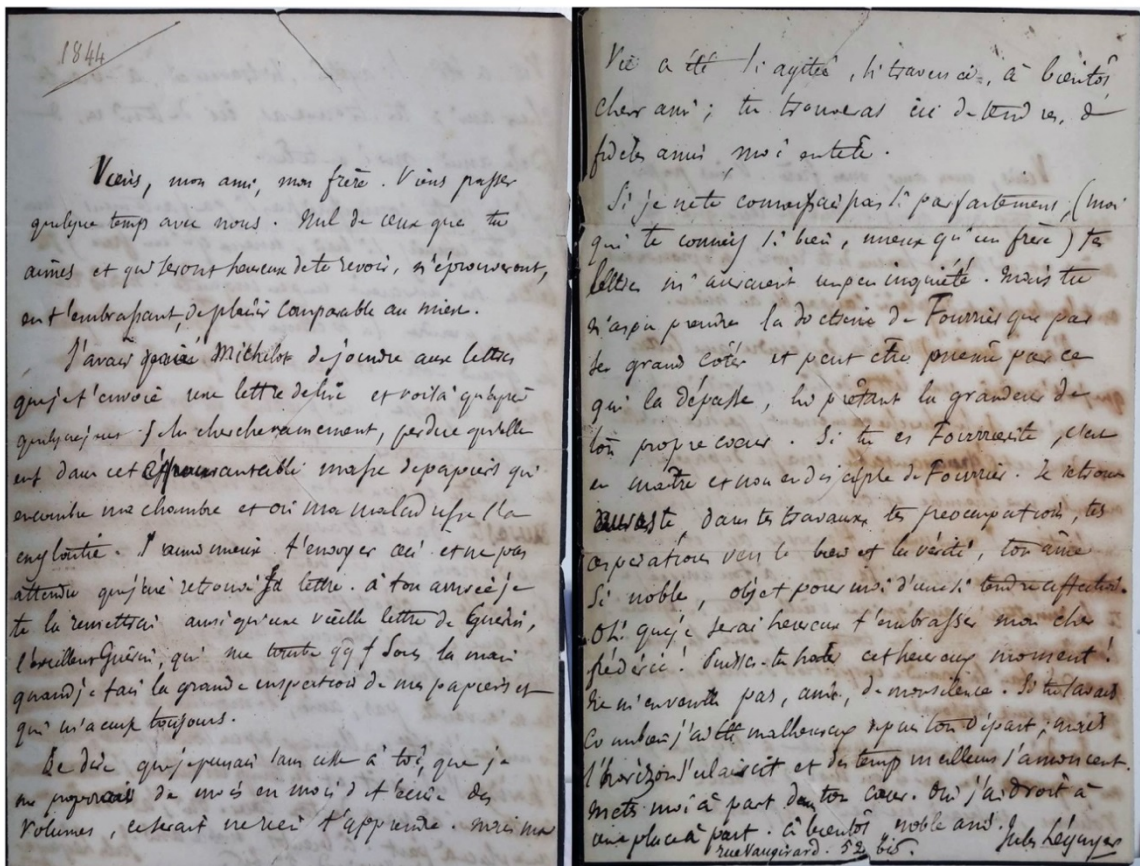 1844
Viens, mon ami, mon frère. Viens passer
quelque temps avec nous. Nul de ceux que tu
aimes et qui seront heureux de te revoir, n'éprouveront,
en t'embrassant, de plaisir comparable au mien.
J'avais prié Michelot de joindre aux lettres
que je t'envoie une lettre de lui et voilà qu'après
quelques jours je la cherche vainement, perdue qu'elle
est dans cet épouvantable masse de papiers qui
encombre ma chambre et où ma maladresse l'a
engloutie. J'aime mieux t'envoyer ceci et ne pas
attendre que j'aie retrouvé sa lettre. à ton arrivée je
te la remettrai ainsi qu'une vieille lettre de Guérin,
l'excellent Guérin, qui me tombe qq f sous la main
quand je fais la grande inspection de mes papiers et
qui m'accuse toujours.
Te dire que je pensais sans cesse à toi, que je
me proposais de mois en mois d't'écrire des
volumes, ce serait ne rien t'apprendre. Mais ma
Vie a été si agitée, si traversée, à bientôt
cher ami; tu trouveras ici de tendres, de
fidèles amis moi en tête.
Si je ne te connaissais pas si parfaitement, (moi
qui te connais si bien, mieux qu'un frère) tes
lettres m'auraient un peu inquiété. Mais tu
n'as pu prendre la doctrine de Fourrier que par
ses grand côtés et peut être même par ce
qui la dépasse, lui prêtant la grandeur de
ton propre coeur. Si tu es Fourrieriste, c'est
en maître et non en disciple de Fourrier. Je retrouve
du reste dans tes travaux, tes préocupations, tes
aspirations vers le bien et la vérité, ton âme
si noble, objet pour moi d'une si tendre affection.
Oh! que je serai heureux t'embrasser mon cher
frédéric! Puisses-tu hater cet heureux moment!
Ne m'en veuille pas, ami, de mon silence. Si tu savais
Combien j'ai été malheureux depuis ton départ; mais
l'horizon s'éclaircit et des temps meilleurs s'annoncent.
Mets-moi à part dans ton coeur. Oui j'ai droit à
une place à part. à bientôt noble ami.
rue Vaugirard. 52 bis. Jules